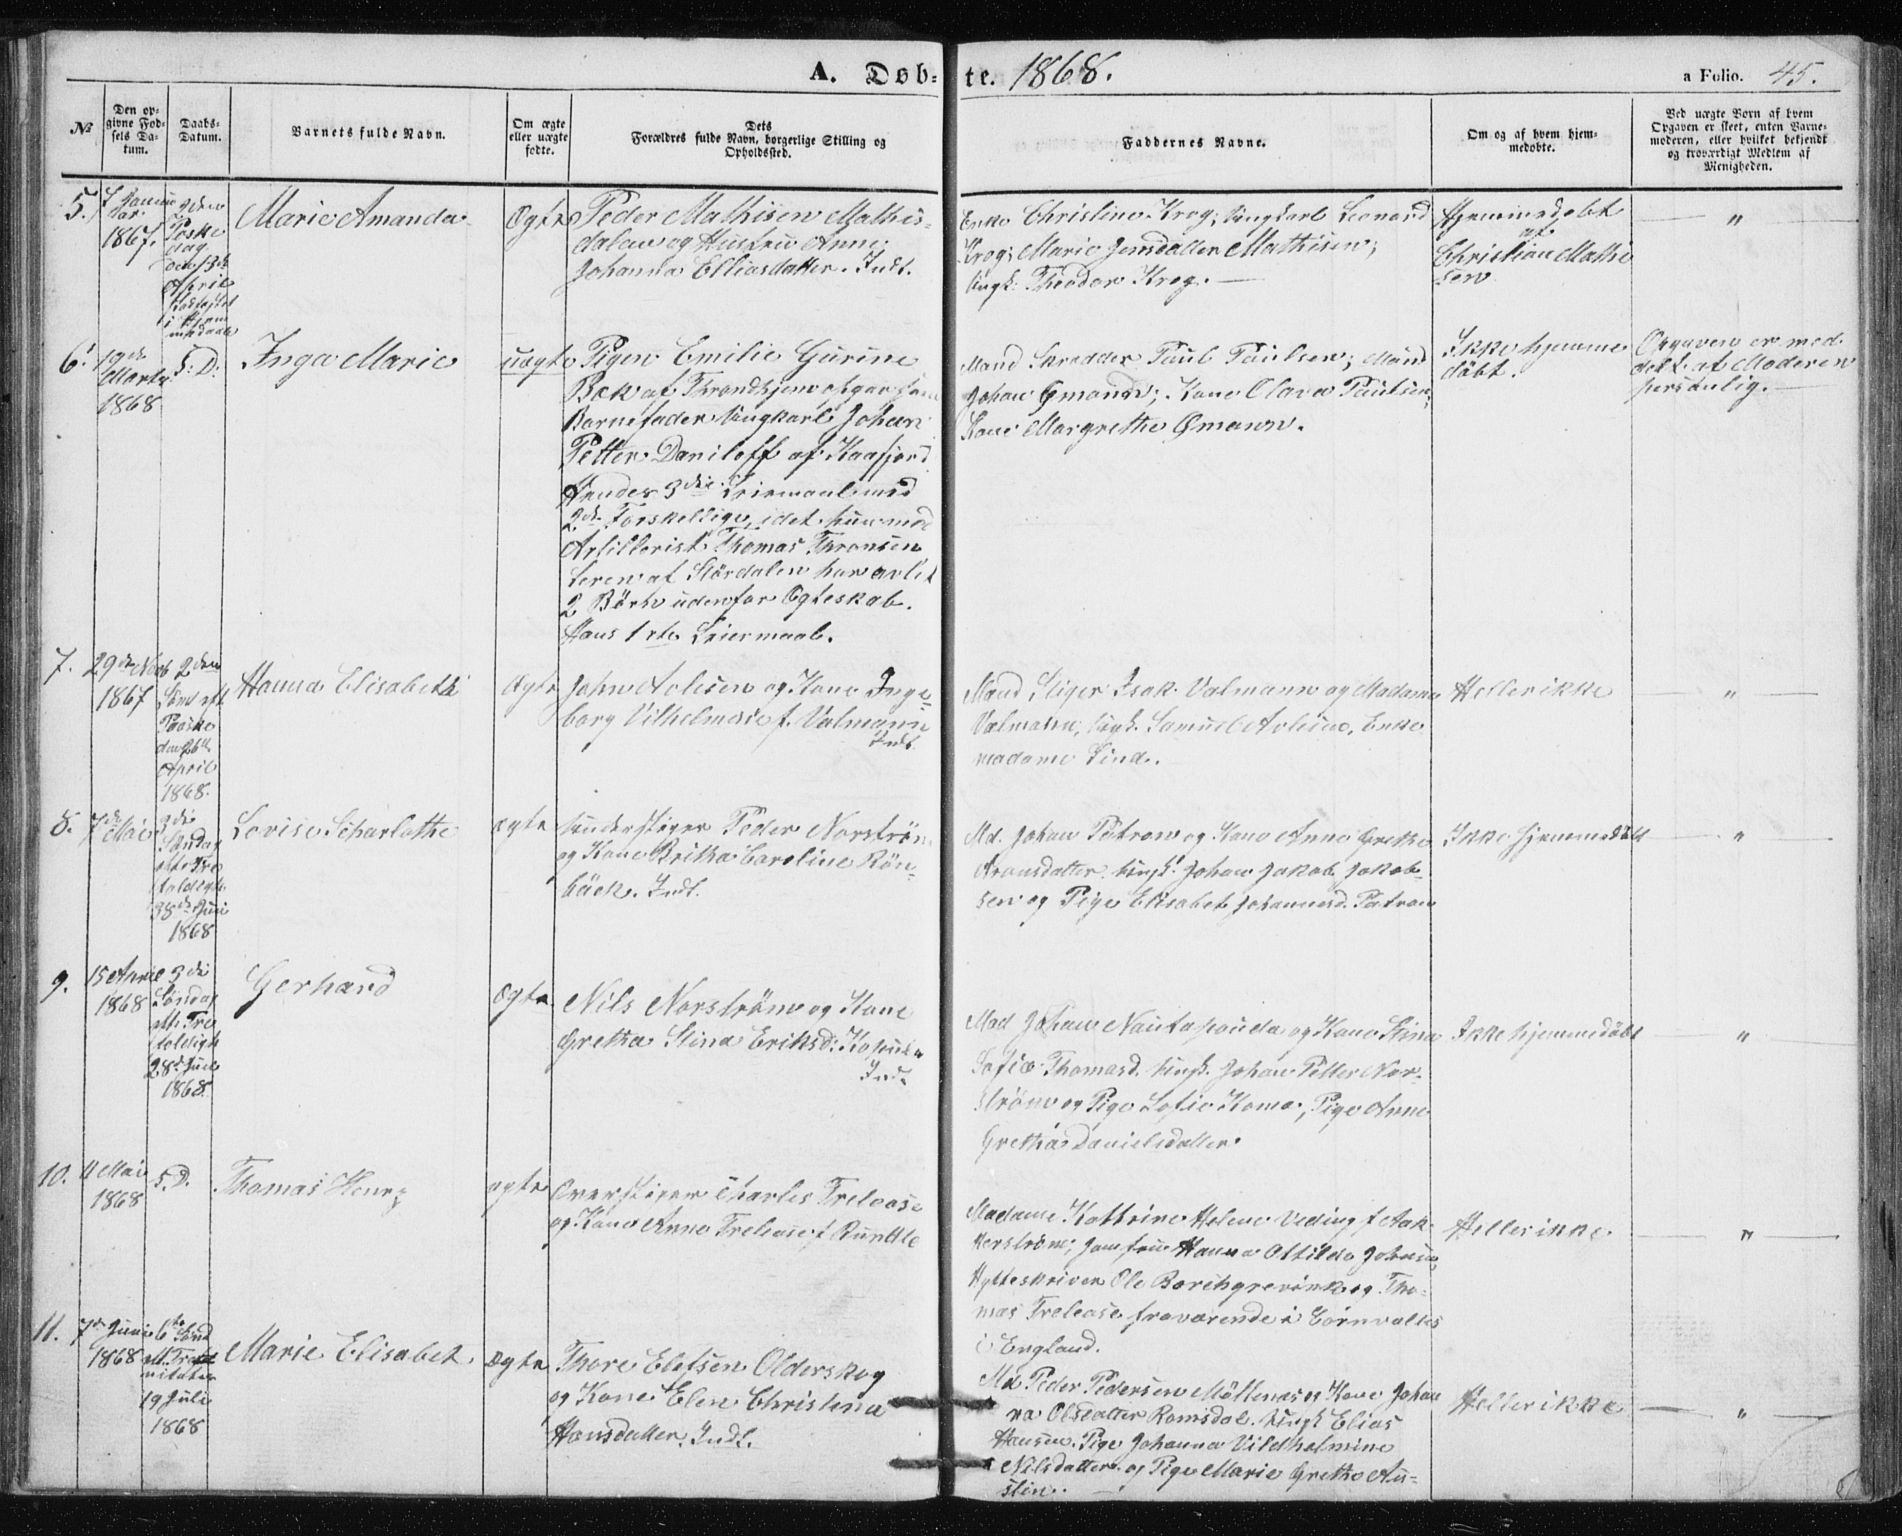 A. Døb-
te. 1868.
a Folio. 45.
№
Den op-
givne Fød-
sels Da-
tum.
Daabs-
Datum.
Barnets fulde Navn.
Om ægte
eller uægte
fødte.
Dets
Forældres fulde Navn, borgerlige Stilling og
Opholdssted.
Faddernes Navne.
Om og af hvem hjem-
medøbte.
Ved uægte Børn af hvem
Opgaven er skeet, enten Barne-
moderen, eller hvilket bekjendt
og troværdigt Medlem af
Menigheden.
5.
7 Januu
ar.
1867.
2den
Paaske
dag
den 13de
April
i Hjem
medaab
Marie Amanda
Ægte
Peder Mathisen Mathis-
dalen og Hustru Anne
Johanna Elliasdatter. Indt.
Enke Christine Krog; Ungkarl Leonard
Krog; Marie Jensdatter Mathisen;
Ungk: Theodor Krog. —
Hjemmedøbt
af
Christian Mathi
sen
— " —
6.
19de
Marts
1868
S: D:
Inga Marie
uægte
Pigen Emilie Gurine
Bek af Throndhjem opgav som
Barnefader Ungkarl Johan
Petter Daniloff af Kaafjord
Hendes 3die Leiermaal med
2de Forskellige, idet hun med
Artillerist Thomas Thronsen
Leren af Størdalen har avlet
2 Børn udenfor Ægteskab.
Hans 1ste Leiermaal.
Mand Skredder Paul Paulsen; Mand
Johan Ømann; Kone Clara Paulsen;
Kone Margrethe Ømann.
Ikke hjemme
døbt.
Opgaven er med
delt af Moderen
personlig. —
7.
29de Nov
1867
2den
Sønd eft
Paaske
den 26de
April
1868.
Hanna Elisabeth
Ægte
John Aolesen og Kone Inge
borg Vilhelmine f. Valmann
Indt.
Mand Stiger Isak Valmann og Madame
Valmann, Ungk. Samuel Aolesen, Enke
madame Lind.
Heller ikke
— " —
8.
7de Mai
3die
Søndag
efter Tre
foldigh.
28de Juni
1868
Lovise Scharlothe
Ægte
Understiger Peder Norstrøm
og Kone Britha Caroline Rön-
bäck. Indt.
Md. Johan Patron og Kone Anne Grethe
Aronsdatter. Ungk: Johan Jakob Jakob-
sen og Pige Elisabet Johannesd. Patron
Ikke hjemmedøbt
— " —
9.
15 April
1868
3die
Søndag
eft. Tre
foldigh
28de Juni
1868
Gerhard
Ægte
Nils Norstrøm og Kone
Gretha Stina Eriksd:
Indt.
Mad Johan Nautapouda og Kone Stina
Sofie Thomasd. Ungk. Johan Petter Nor-
strøm og Pige Sofie Koma, Pige Anne
Gretha Danielsdatter.
Ikke hjemmedøbt
— " —
10.
11 Mai
1868
S. D.
Thomas Henry
ægte
Overstiger Charles Trelease
og Kone Anne Trelease f Rundtle
Madame Kathrine Helene Veding f Aak-
kerstrøm; Jomfrue Hanna Ottilde Johnsen,
Hytteskriver Ole Borchgrevink og Tho-
mas Trelease fraværende i Cornvalles
i England.
Heller ikke
— " —
11.
7de Juni
1868
6te Sønd
eft. Tri
nitatis
19 Juli
1868
Marie Elisabet
Ægte
Thore Elefsen Olderskog
og Kone Elen Christina
Hansdatter. Indt.
Md Peder Pedersen Møllenes og Kone Johan
na Olsdatter Romsdal. Ungk Elias
Hansen. Pige Johanna Vildhelmine
Nilsdatter og Pige Marie Grethe Au-
stin. —
Heller ikke
— " —